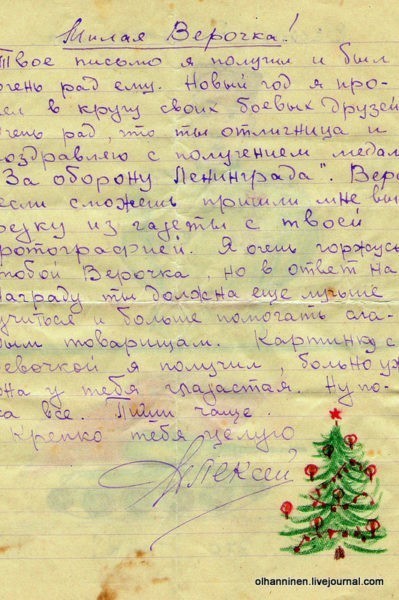 Милая Верочка!
Твое письмо я получил и был
очень рад ему. Новый год я про-
ел в кругу своих боевых друзей
Очень рад, что ты отличница и
поздравляю с получением медал
"За оборону Ленинграда". Веро
если сможешь пришли мне вы
резку из газеты с твоей
фотографией. Я очень горжусь
тобой Верочка, но в ответ на
награду ты должна еще лучше
учиться больше помогать сла-
бым товарищам. Картинку с
девочкой я получил, больно уж
она у тебя глазастая. Ну по-
ка все. Пиши чаще.
Крепко тебя целую
Алексей
olhanninen.livejournal.com